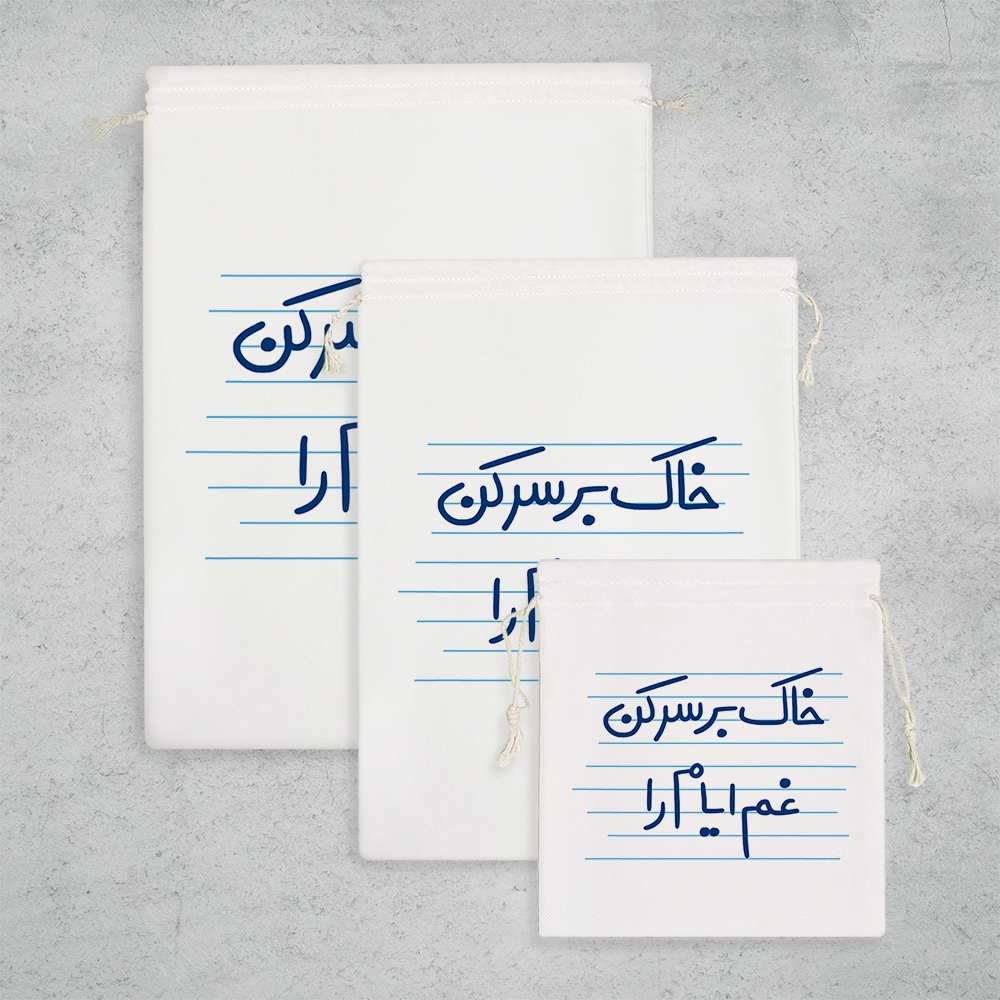 سر کن
را
خاک بر سر کن
را
خاک بر سر کن
غم ایام را